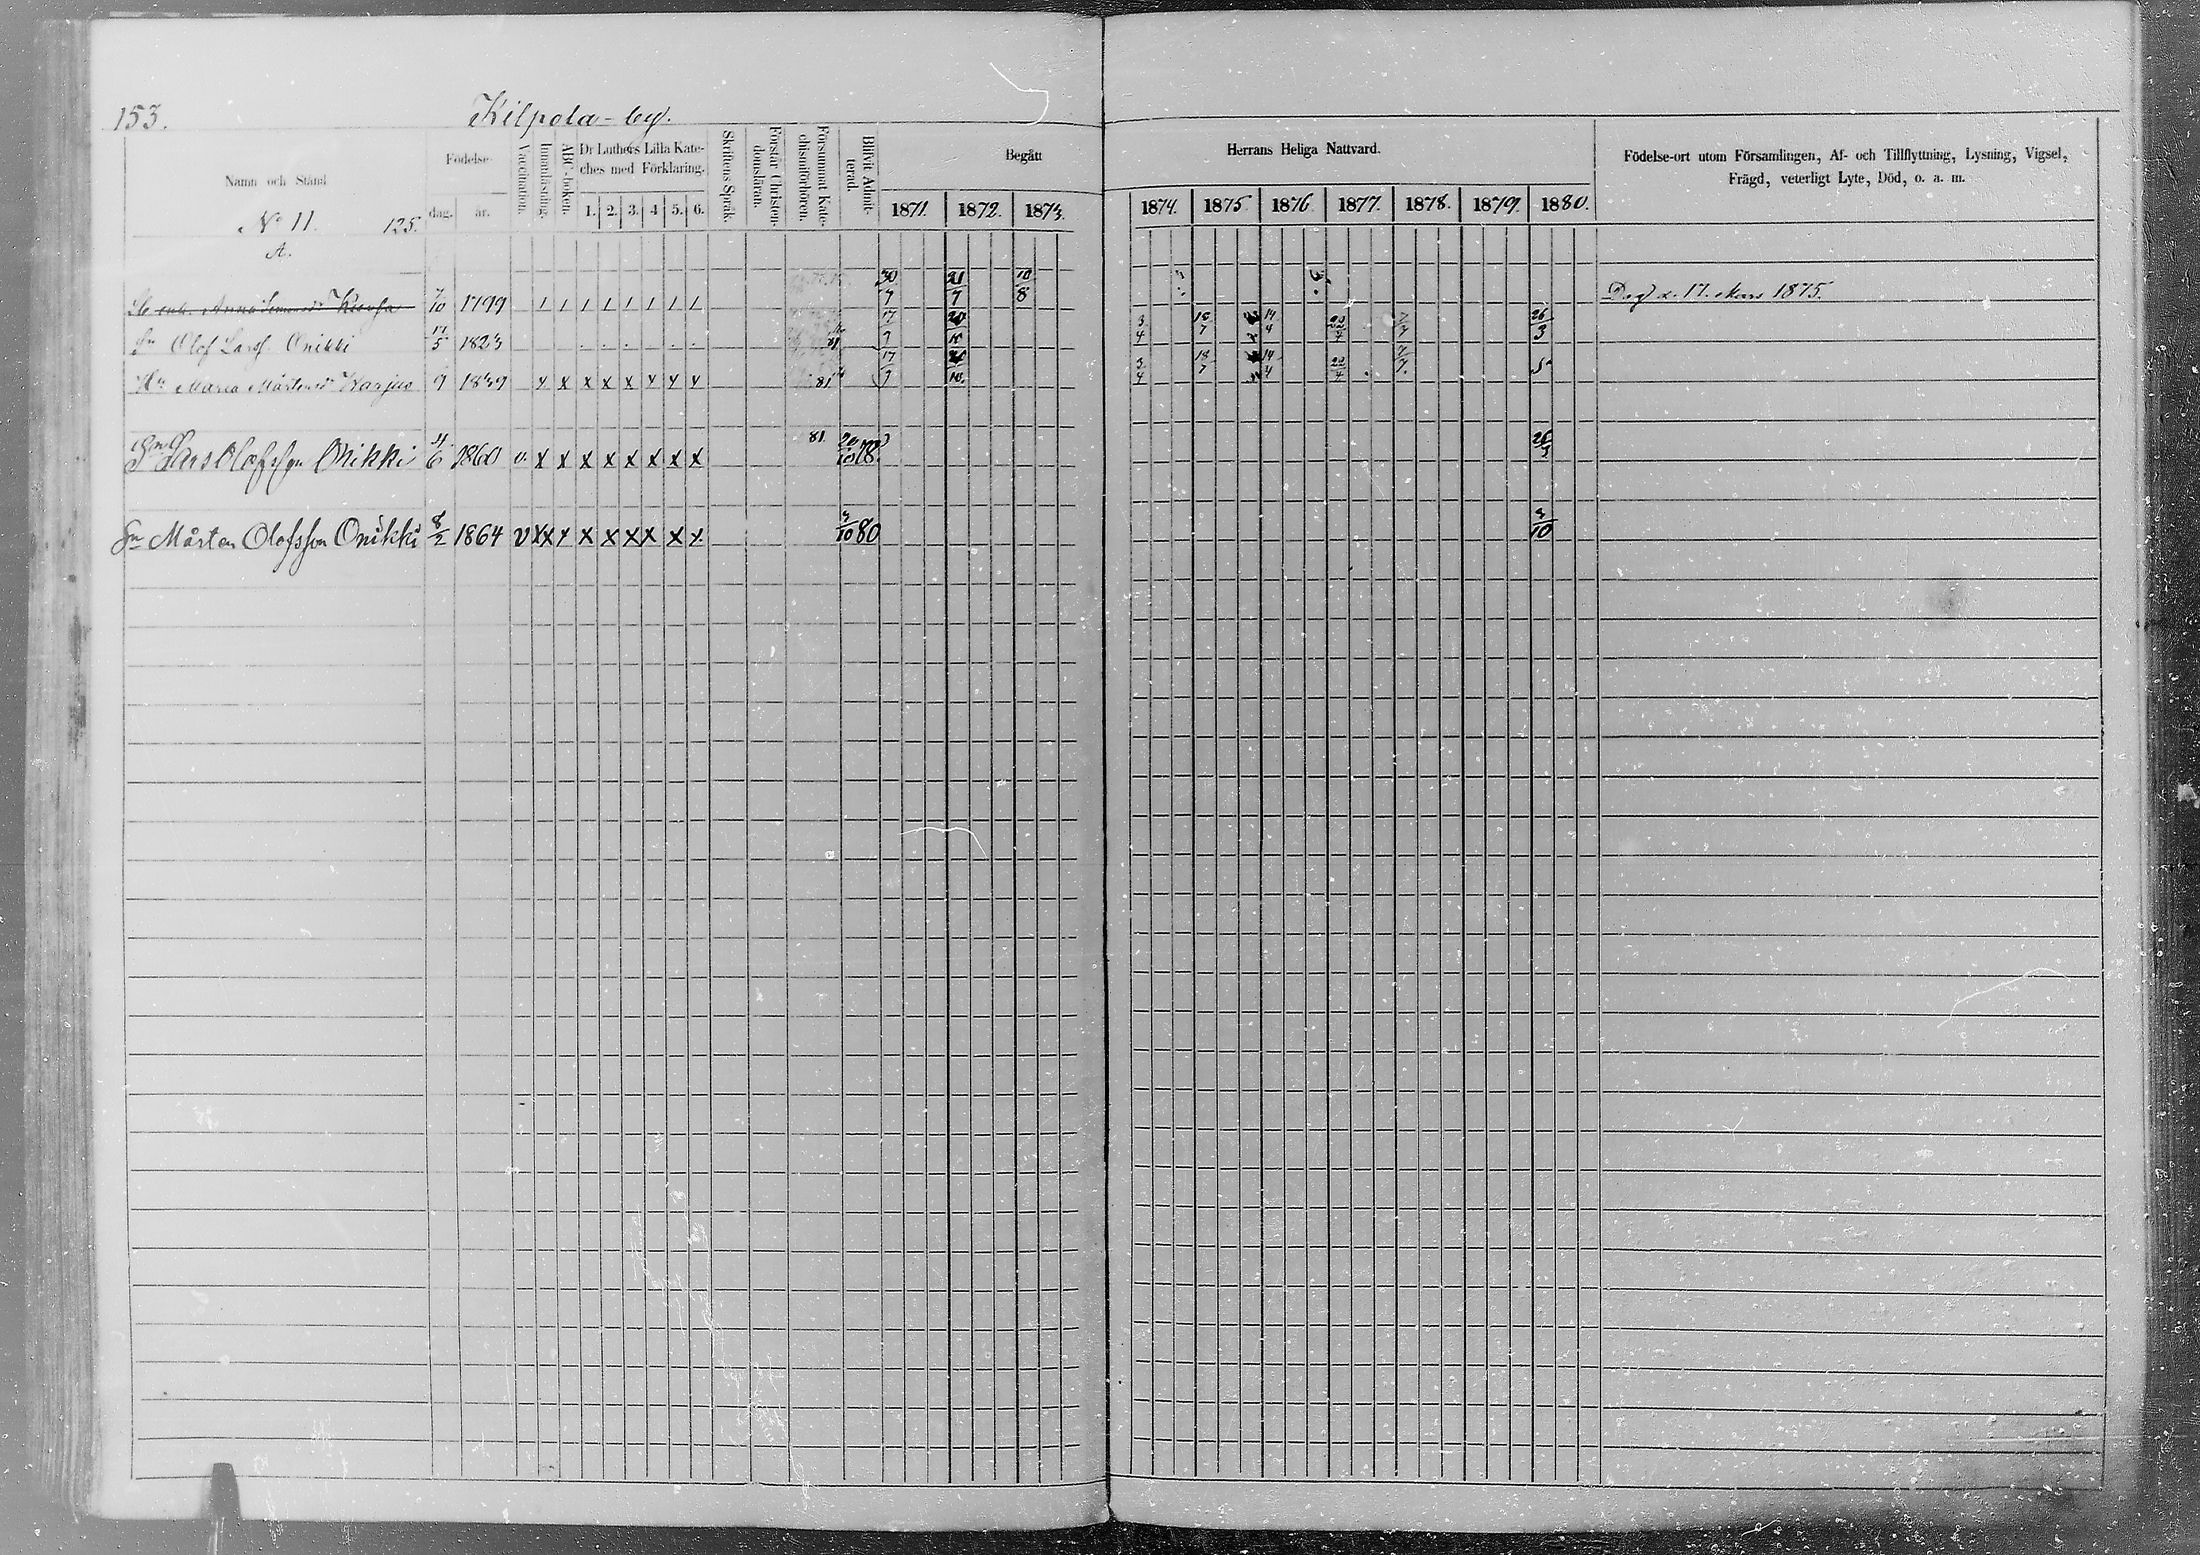 153.
Kilpola-by.
Namn och Stånd
Födelse-
dag. år.
Vaccination.
Innanläsning.
ABC-boken.
Dr Luthers Lilla Kate-
ches med Förklaring.
1. 2. 3. 4 5. 6.
Skriftens Språk.
Förstår Christen-
domsläran.
Försummat Kate-
chismiförhören.
Blifvit Admit-
terad.
Begått
1871. 1872. 1873.
Herrans Heliga Nattvard.
1874. 1875 1876 1877. 1878. 1879. 1880.
Födelse-ort utom Församlingen, Af- och Tillflyttning, Lysning, Vigsel,
Frägd, veterligt Lyte, Död, o. a. m.
No 11. 125.
A.
Anna 7/10 1799 / / / / / / / / 30/7 21/7 10/8 Död d. 17. Mars 1875.
Sn Olof Larss. Onikki 17/5 1823 17/9 3/4 18/7 14/4 22/4 7/7 26/3
Hu Maria Mårtensd Karjus 9 1839 x x x x x x x x 81 17/9 3/4 18/7 14/4 22/4 7/7
Sn Lars Olofsson Onikki 1860 v. x x x x x x x x 81. 20/10 18
Sn Mårten Olofsson Onikki 8/2 1864 v x x x x x x x x x 3/10 80 3/10